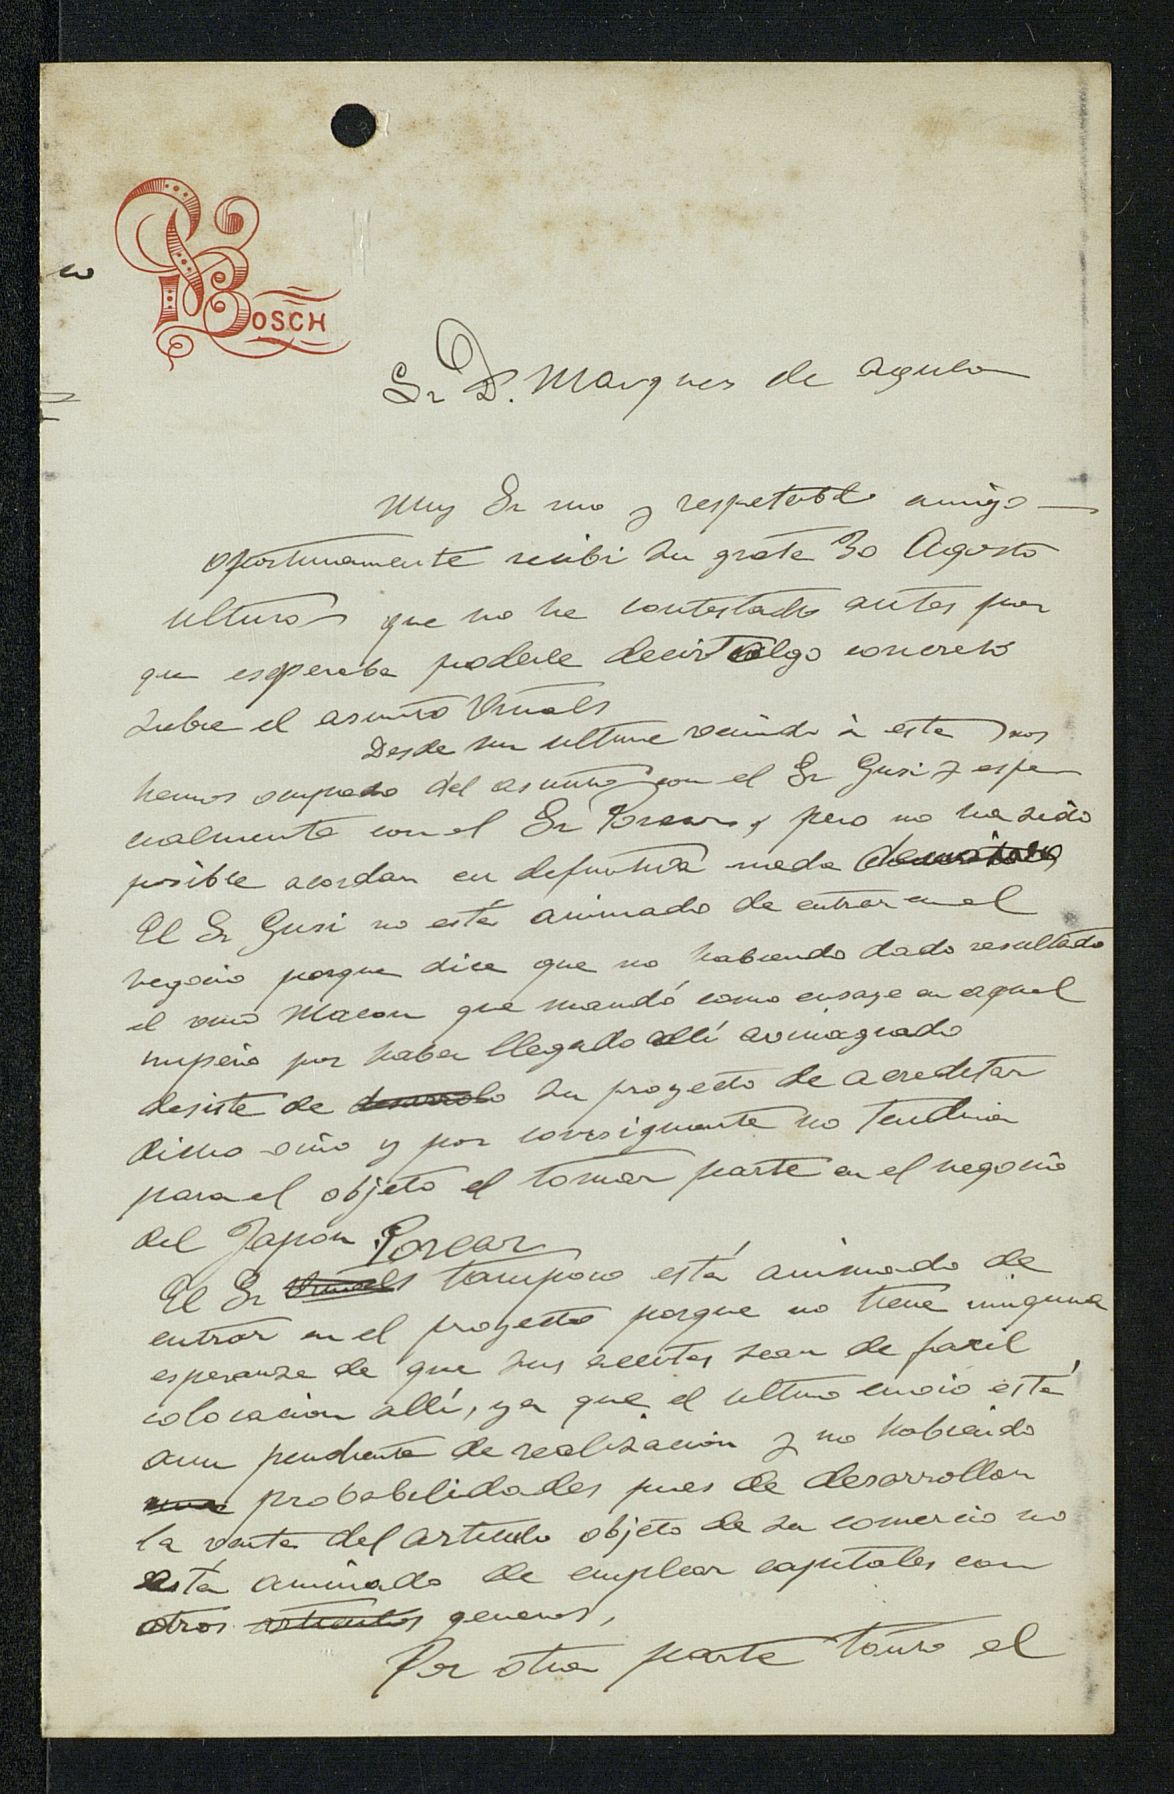 BOSCH
Sr D. Marques de Agulo
Muy Sr mio y respetable amigo
oportunamente recibi su grata 30 Agosto
ultimo que no he contestado antes por
que esperaba poderle decir algo concreto
sobre el asunto Viñals
Desde su ultima venida á esta nos
hemos ocupado del asunto con el Sr Gusi y espe
cialmente con el Sr Porcar, pero no ha sido
posible acordar en definitiva nada
El Sr Gusi no está animado de entrar en el
negocio porque dice que no habiendo dado resultado
el vino Macon que mandó como ensaye en aquel
imperio por haber llegado allí avinagrado
desiste de desarrolo su proyecto de acreditar
dicho vino y por consiguiente no tendria
para el objeto el tomar parte en el negocio
del Japon.
Porcar
El Sr Viñals tampoco está animado de
entrar en el proyecto porque no tiene ninguna
esperanza de que sus aceites sean de facil
colocacion allí, ya que el ultimo envio está
aun pendiente de realizacion y no habiendo
probabilidades pues de desarrollar
la venta del articulo objeto de su comercio no
está animado de emplear capitales con
otros articulos generos,
Por otra parte tanto el